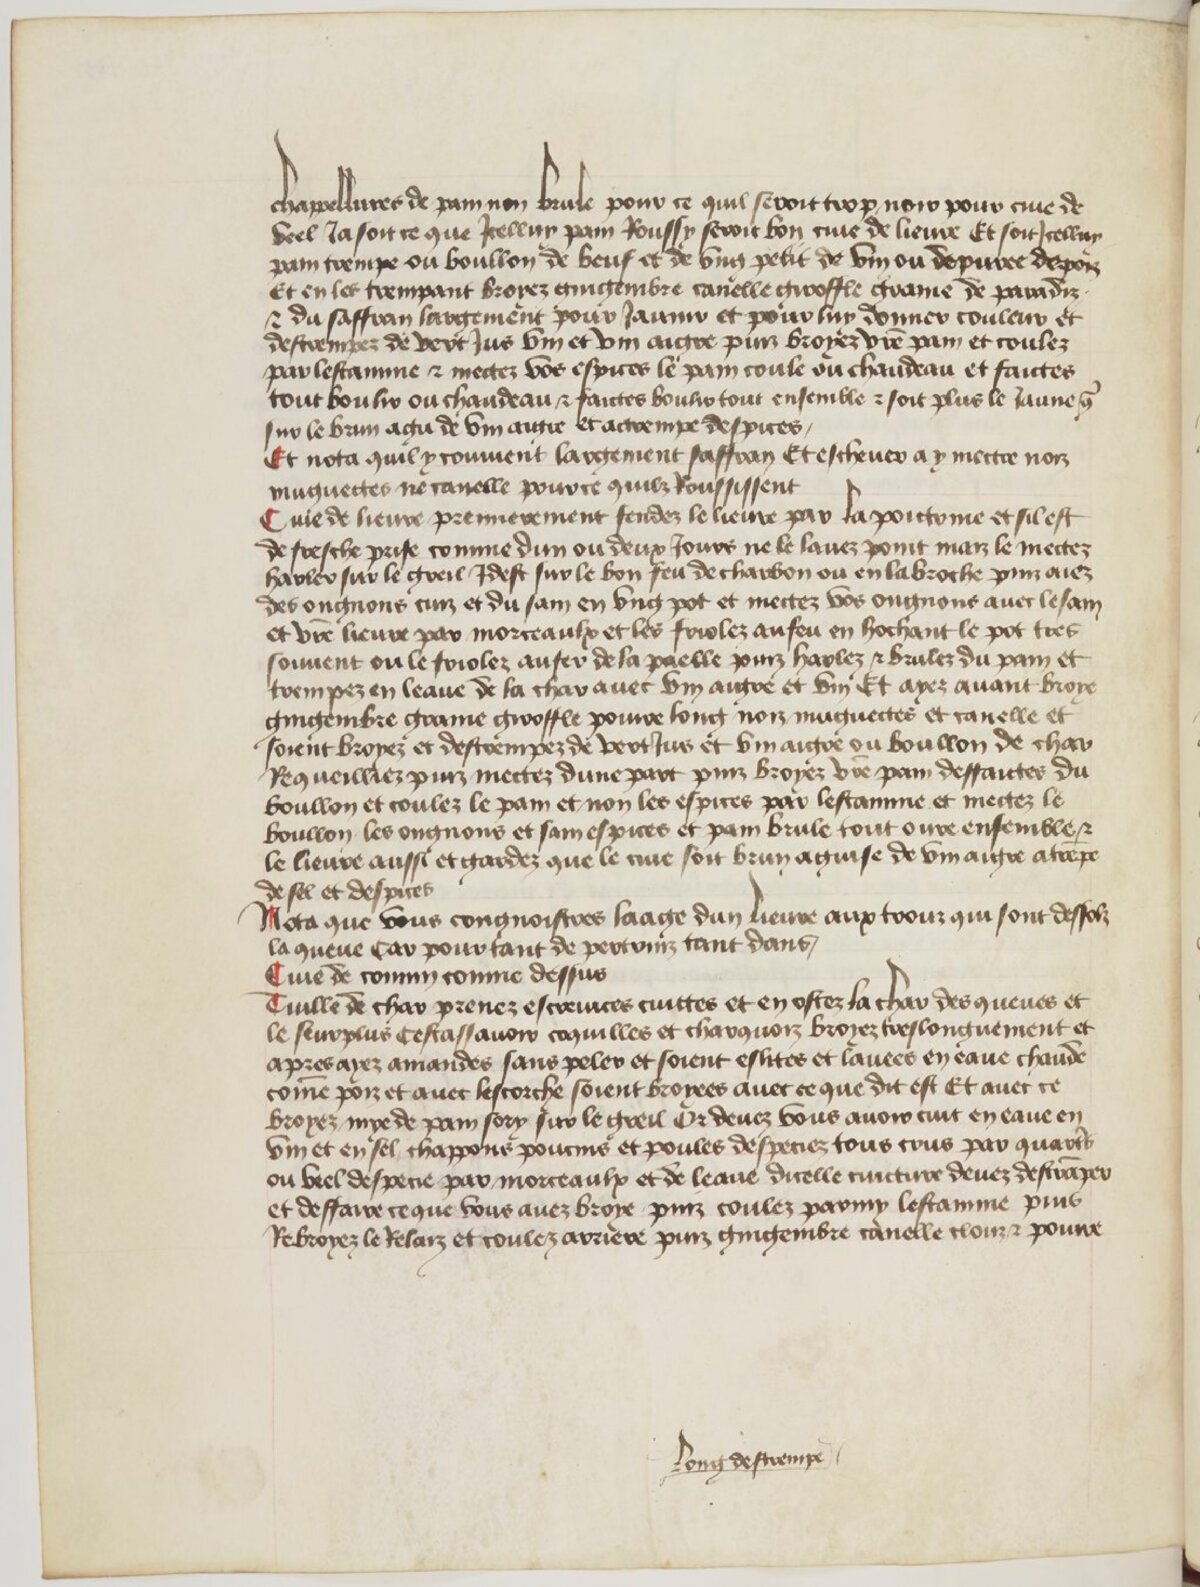 chappellures de pain non brule pour ce quil seroit trop noir pour ciue de
veel Ja soit ce que Jcelluy pain Roussy seroit bon ciue de lieure Et soit Jcelluy
pain trempe ou boullon de beuf et de vng petit de vin ou de puree de poiz
Et en les trempant broyez gingembre canelle giroffle graine de paradiz
⁊ du saffran largement pour Jaunir et pour luy donner couleur et
destrempez de vert Jus vin et vin aigre puiz broyez vrẽ pain et coulez
par lestamine ⁊ mectez vos espices le pain coule ou chaudeau et faictes
tout boulir ou chaudeau ⁊ faictes boulir tout ensemble ⁊ soit plus le Jaune q̃
sur le brun agu de vin aigre et actrempe despices
Et nota quil y conuient largement saffran Et escheuer a y mectre noiz
muguectes ne canelle pour ce quilz Roussissent
Ciue de lieure premierement fendez le lieure par la poictrine et sil est
de fresche prise comme dun ou deux Jours ne le lauez point maiz le mectez
harler sur le greil Jdest sur le bon feu de charbon ou en la broche puiz aiez
des ongnons cuiz et du sain en vng pot et mectez vos ongnons auec le sain
et vrẽ lieure par morceaulx et les friolez au feu en hochant le pot tres
souuent ou le friolez au fer de la paelle puiz harlez ⁊ brulez du pain et
trempez en leaue de la char auec vin aigre et vin Et ayez auant broye
gingembre graine giroffle poiure long noiz muguectes et canelle et
soient broyez et destrempez de vert Jus et vin aigre ou boullon de char
Requeilliez puiz mectez dune part puiz broyez vrẽ pain deffaictes du
boullon et coulez le pain et non les espices par lestamine et mectez le
boullon les ongnons et sain espices et pain brule tout cuire ensemble ⁊
le lieure aussi et gardez que le ciue soit brun aguise de vin aigre atrẽpe
de sel et despices
Nota que vous congnoistres laage dun lieure aux trouz qui sont dessoubz
la queue Car pour tant de pertuiz tant dans
Ciue de connin comme dessus
Tuille de char prenez escreuices cuittes et en ostez la char des queues et
le seurplus Cestassauoir coquilles et charquoiz broyez treslonguement et
apres ayez amandes sans peler et soient eslites et lauees en eaue chaude
com̃e poiz et auec lescorche soient broyees auec ce que dit est Et auec ce
broyez mye de pain sory sur le greil Or deuez vous auoir cuit en eaue en
vin et en sel chappons poucins et poules despeciez tous crus par quartiers
ou veel despecie par morceaulx et de leaue dicelle cuicture deuez destrãper
et deffaire ce que vous auez broye puiz coulez parmy lestamine puis
Rebroyez le Relaiz et coulez arriere puiz gingembre canelle clouz ⁊ poiure
long destrempe